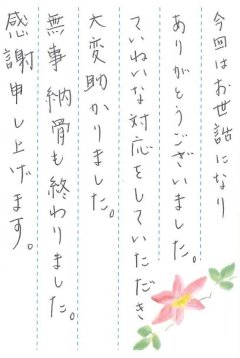 今回はお世話になり
ありがとうございました。
ていねいな対応をしていただき
大変助かりました。
無事納骨も終わりました。
感謝申し上げます。